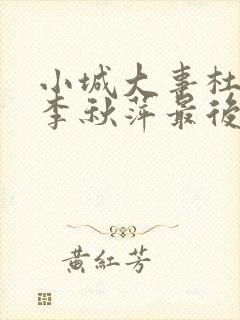 小城大事杜
李秋萍最後
黃紅芳